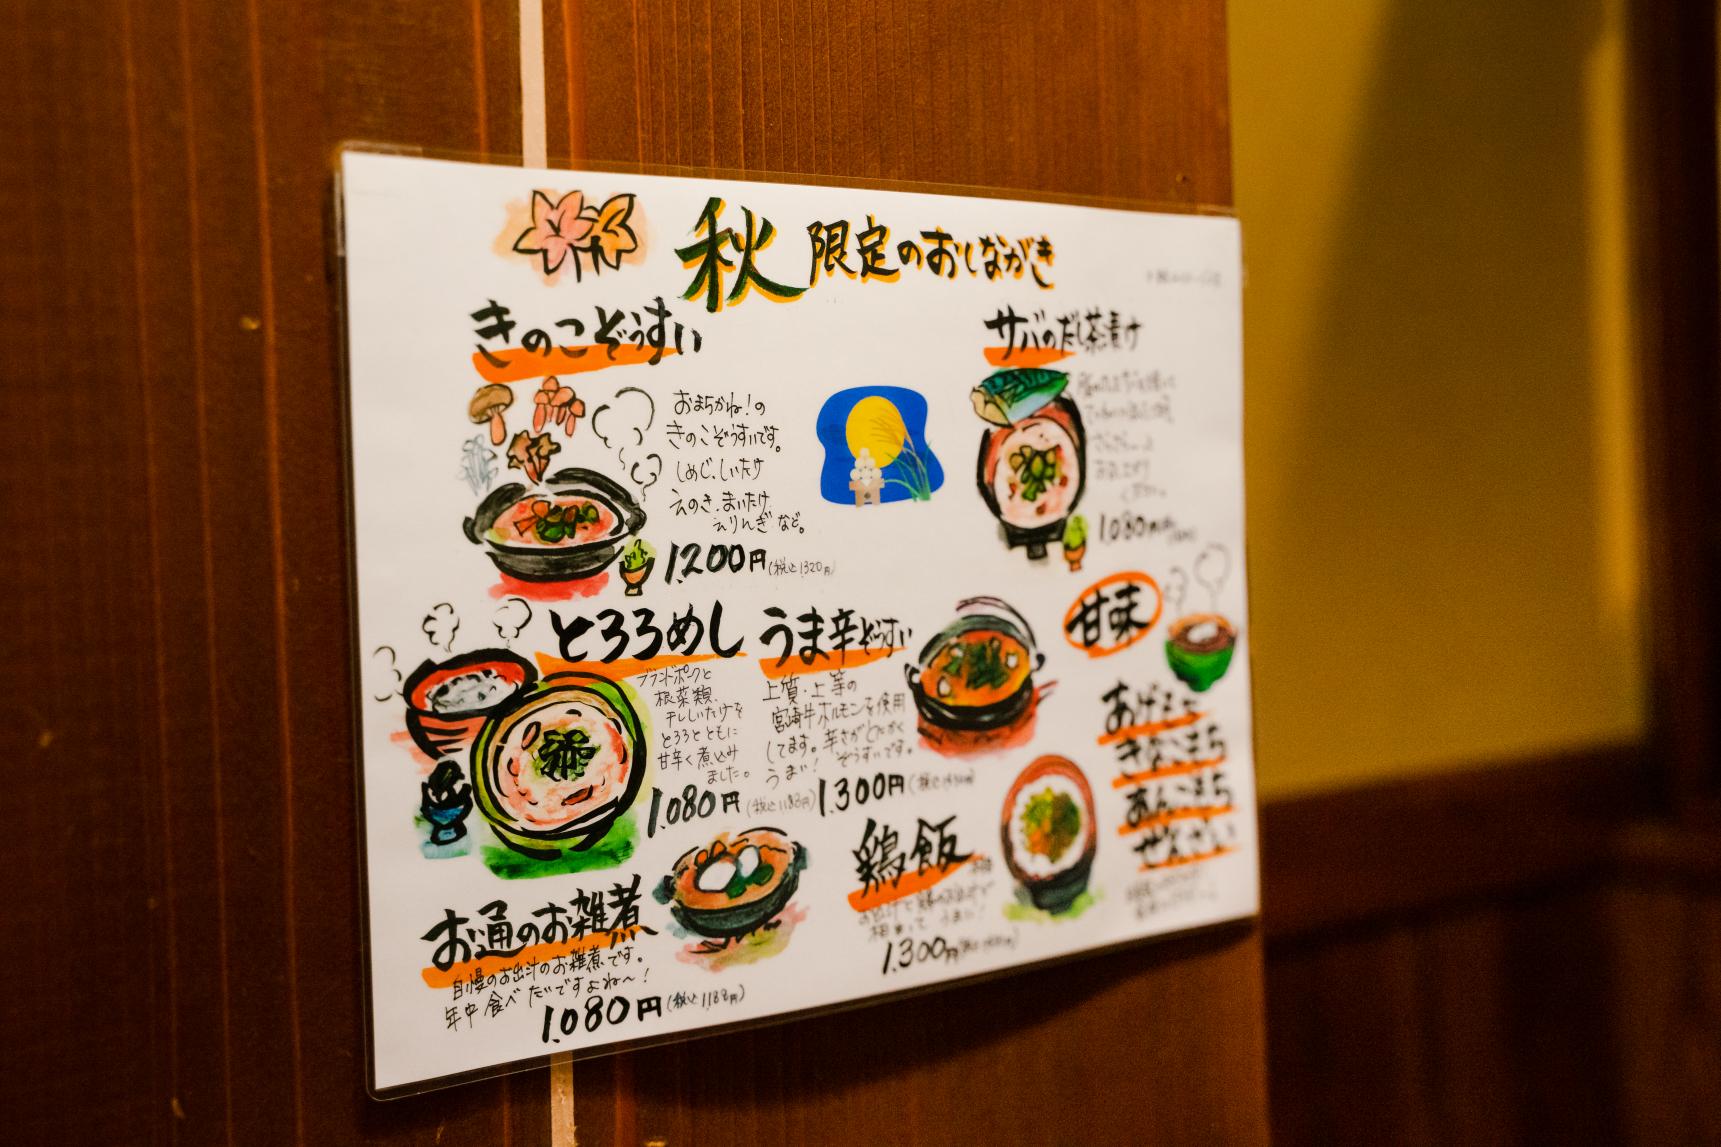 秋限定のおしながき
きのこぞうすい
おまちかね!の
きのこぞうすいです。
しめじ、しいたけ
えのき、まいたけ、
えりんぎなど。
1,200円(税込1320円)
サバのだし茶漬け
さらさらっと
1,080円
とろろめし
ブランドポークと
根菜類、
干ししいたけを
とろろとともに
甘辛く煮込み
ました。
1,080円(税込1188円)
うま辛ぞうすい
上質・上等の
宮崎牛ホルモンを使用
してます。辛さがとにかく
うまい!ぞうすいです。
1,300円
甘味
きなこもち
あんこもち
ぜんざい
お通のお雑煮
自慢のお出汁のお雑煮です。
年中食べだいですよね〜!
1,080円(税込1188円)
鶏飯
相まってうまい!
1,300円